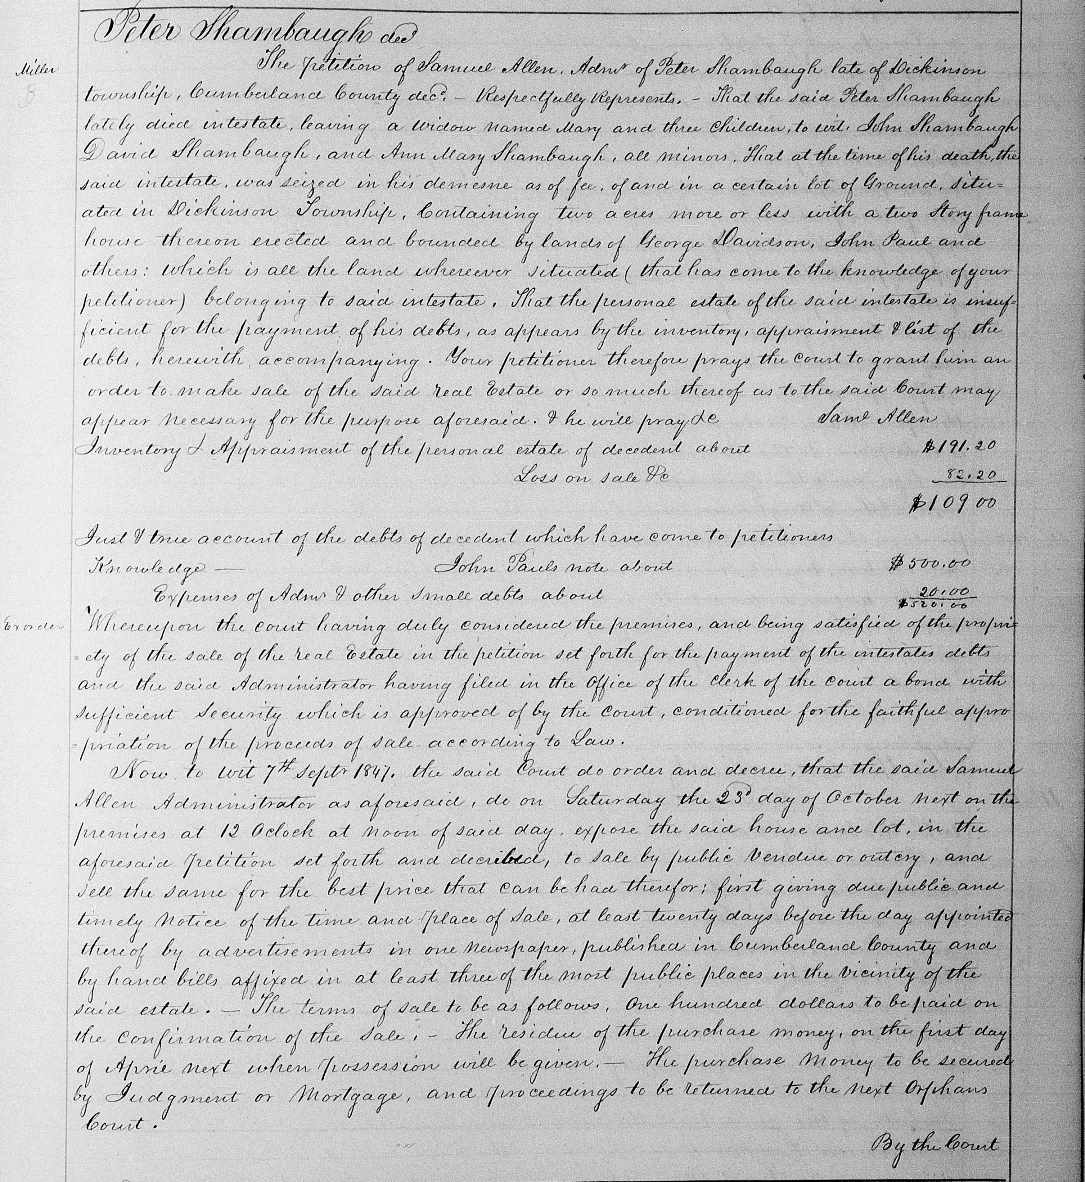 Peter Shambaugh decd
Miller
The petition of Samuel Allen, Admr of Peter Shambaugh late of Dickinson
township, Cumberland County decd. – Respectfully Represents. – That the said Peter Shambaugh
lately died intestate, leaving a widow named Mary and three children, to wit, John Shambaugh
David Shambaugh, and Ann Mary Shambaugh, all minors. That at the time of his death, the
said intestate, was seized in his demesne as of fee, of and in a certain lot of Ground, situ=
ated in Dickinson Township, Containing two acres more or less with a two Story frame
house thereon erected and bounded by lands of George Davidson, John Paul and
others: which is all the land whereever situated (that has come to the knowledge of your
petitioner) belonging to said intestate. That the personal estate of the said intestate is insuf=
ficient for the payment of his debts, as appears by the inventory, appraisment & list of the
debts, herewith accompanying. Your petitioner therefore prays the court to grant him an
order to make sale of the said real Estate or so much thereof as to the said Court may
appear necessary for the purpose aforesaid. & he will pray &c Saml Allen
Inventory & Appraisment of the personal estate of decedent about $191.20
Loss on sale &c 82.20
$109 00
Just & true account of the debts of decedent which have come to petitioners
Knowledge — John Pauls note about $500.00
Expenses of Admr & other small debts about 20.00
$520.00
Ex order Whereupon the court having duly considered the premises, and being satisfied of the propri=
=ety of the sale of the real Estate in the petition set forth for the payment of the intestates debts
and the said Administrator having filed in the office of the clerk of the court a bond with
sufficient security which is approved of by the court, conditioned for the faithful appro
=priation of the proceeds of sale according to Law.
Now to wit 7th Septr 1847. the said Court do order and decree, that the said Samuel
Allen Administrator as aforesaid, do on Saturday the 23d day of October next on the
premises at 12 Oclock at noon of said day, expose the said house and lot, in the
aforesaid petition set forth and decribed, to sale by public Vendue or outcry, and
sell the same for the best price that can be had therefor; first giving due public and
timely Notice of the time and place of sale, at least twenty days before the day appointed
thereof by advertisements in one Newspaper, published in Cumberland County and
by hand bills affixed in at least three of the most public places in the vicinity of the
said estate. — The terms of sale to be as follows, One hundred dollars to be paid on
the confirmation of the sale. – The residue of the purchase money, on the first day
of April next when possession will be given. — The purchase money to be secured
by Judgment or Mortgage, and proceedings to be returned to the next Orphans
Court.
By the Court